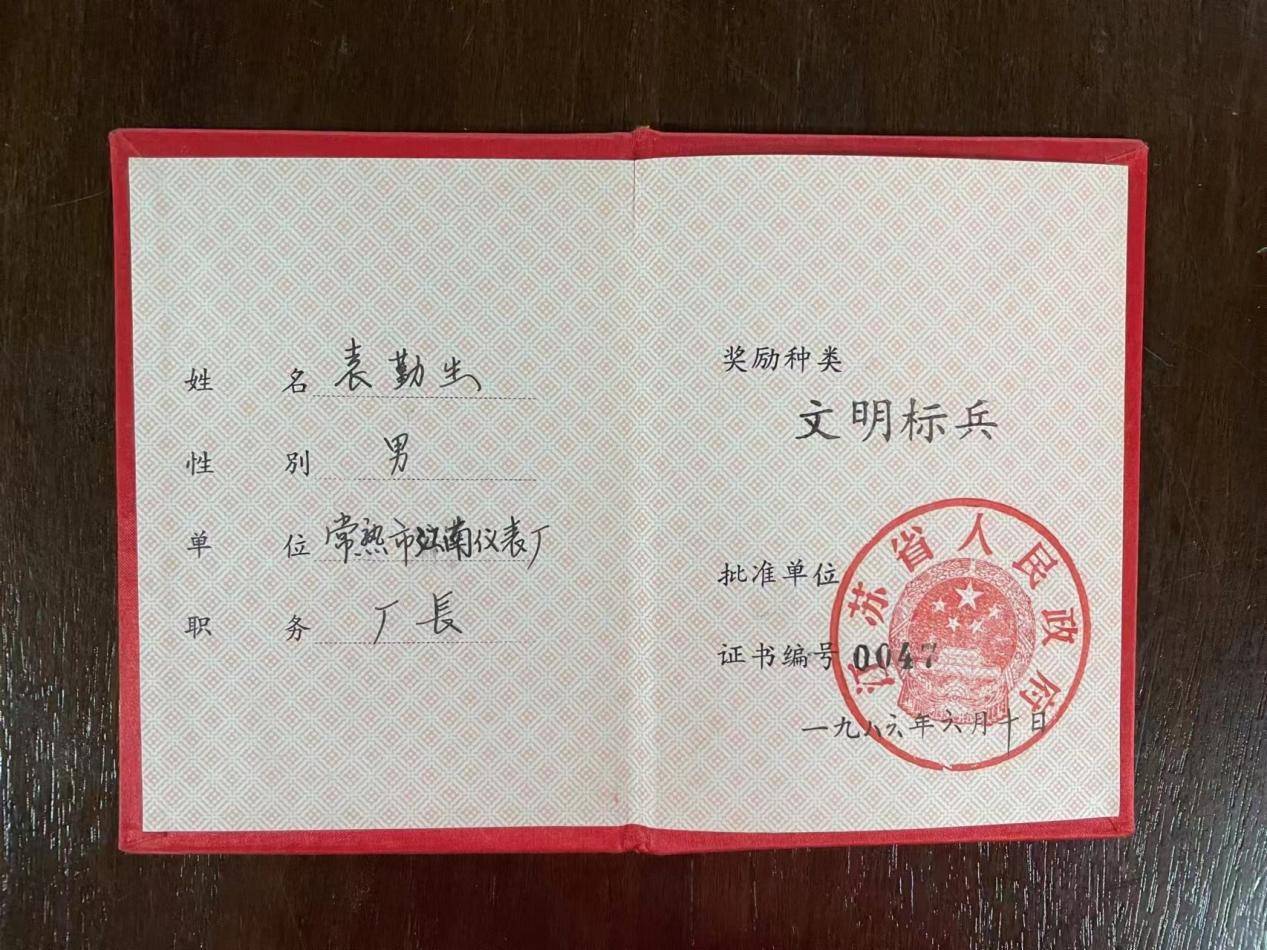 姓名 袁勤生
性别 男
单位 常熟市江南仪表厂
职务 厂長
奖励种类
文明标兵
批准单位
江苏省人民政府
证书编号 0047
一九八六年六月十日